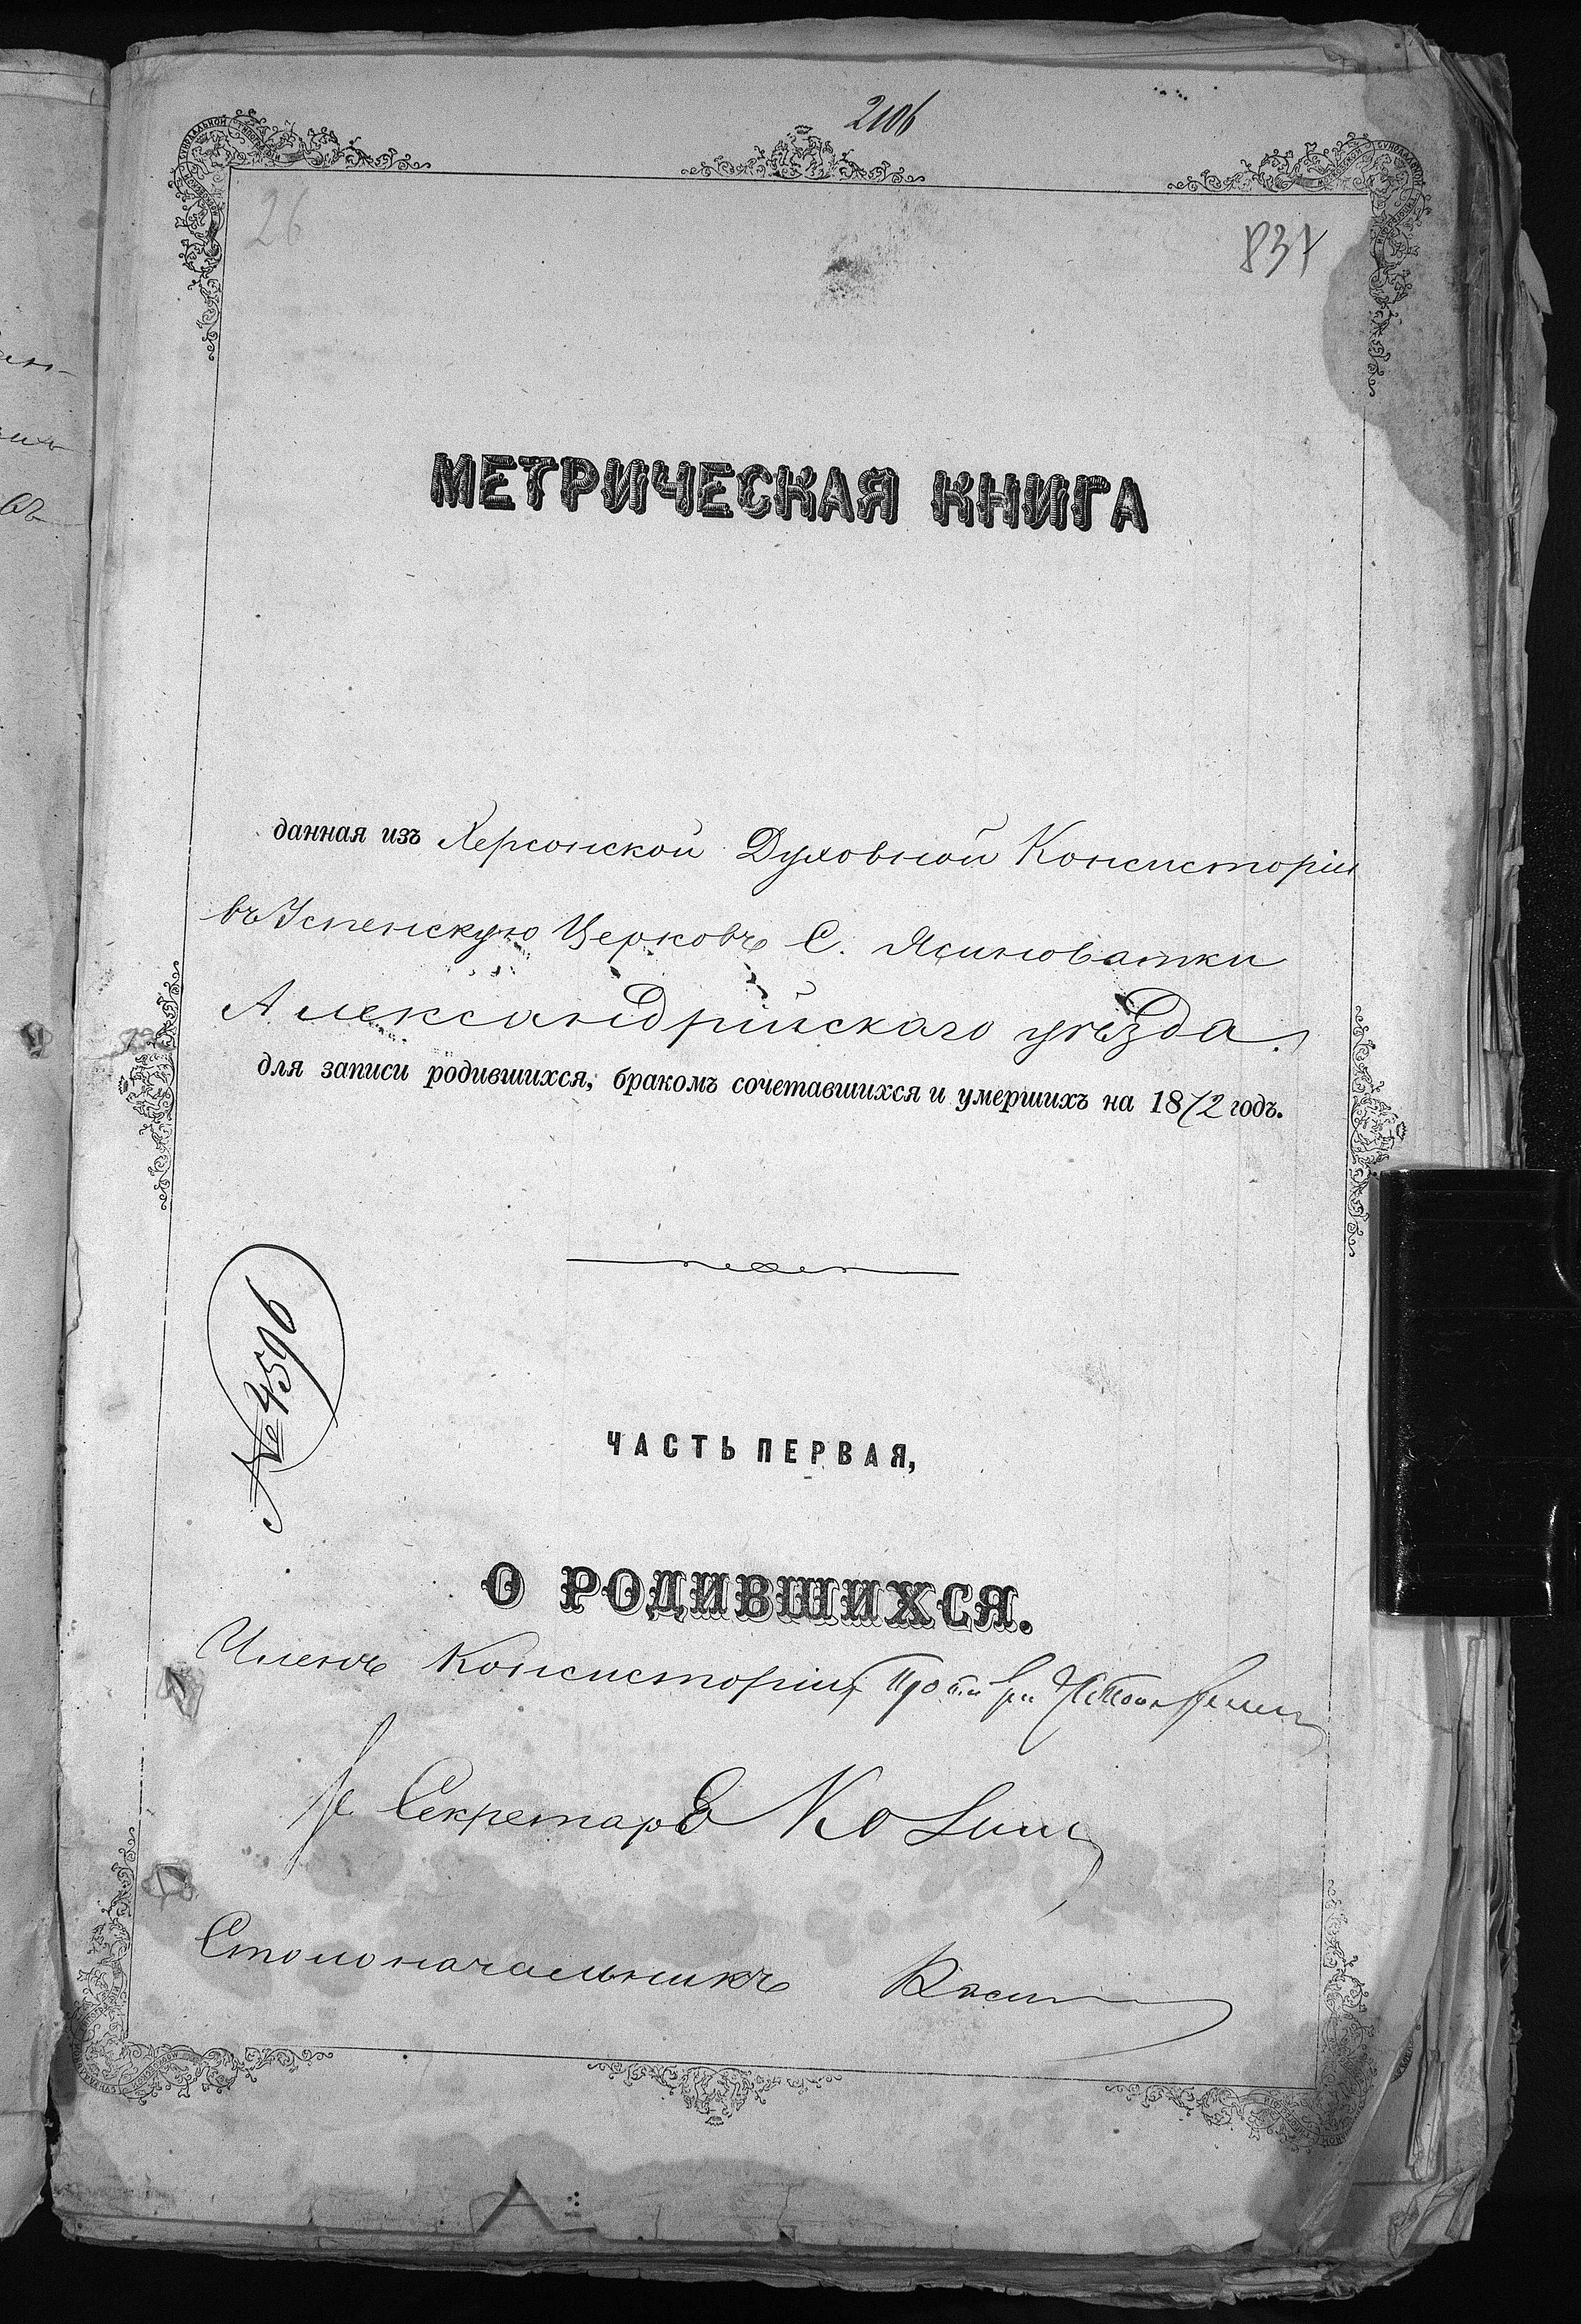 2106
26
837
МЕТРИЧЕСКАЯ КНИГА
данная изъ Херсонской Духовной Консисторіи
въ Успенскую Церковь С. Ясиноватки
Александрійскаго уѣзда
для записи родившихся, бракомъ сочетавшихся и умершихъ на 1872 годъ.
№ 4596
ЧАСТЬ ПЕРВАЯ,
О РОДИВШИХСЯ.
Членъ Консисторіи
Секретарь
Столоначальникъ